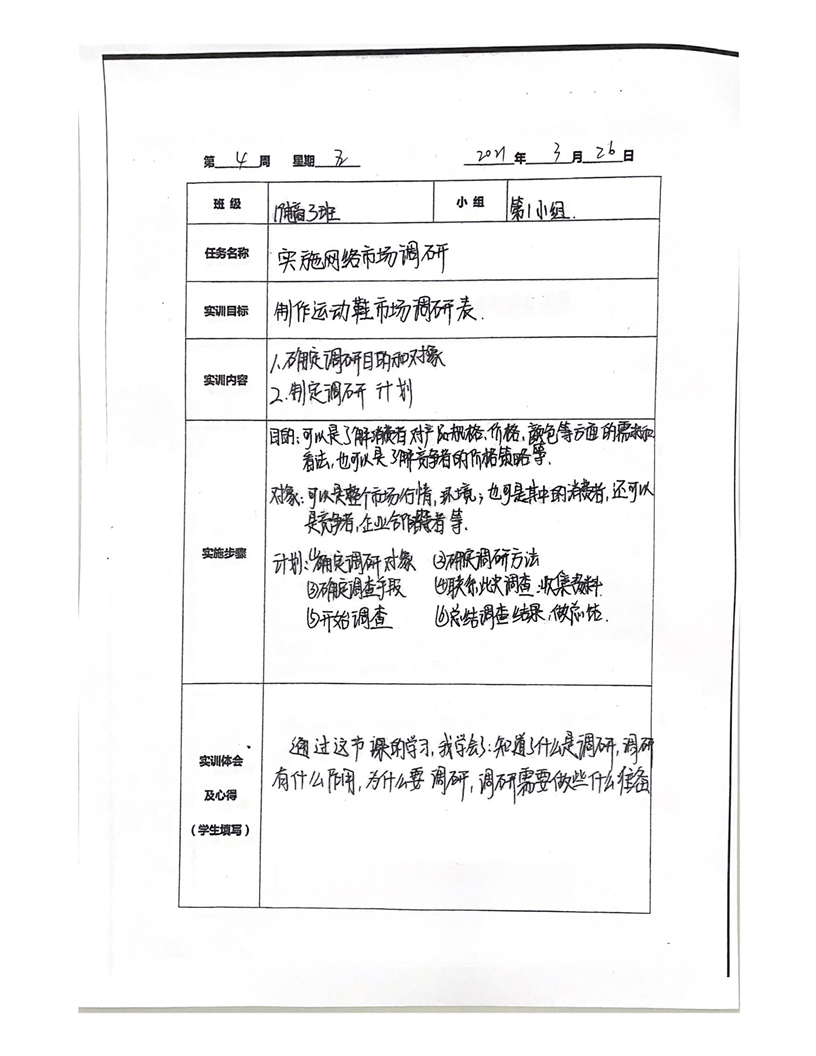 第 4 周 星期 五 2021 年 3 月 26 日
班 级 17 3班 小 组 第1小组.
任务名称 实施网络市场调研
实训目标 制作运动鞋市场调研表.
实训内容
1.确定调研目的和对象
2.制定调研 计划
实施步骤
目的:可以是了解消费者对产品规格、价格、颜色等方面的需求和
看法,也可以是了解竞争者的价格策略等.
对象:可以是整个市场行情,环境;也可是其中的消费者,还可以
是竞争者,企业合作者等.
计划:(1)确定调研对象 (2)确定调研方法
(3)确定调查手段 (4)联系 调查,收集资料.
(5)开始调查 (6)总结调查结果,做总结.
实训体会
及心得
(学生填写)
通过这节课的学习,我学会了:知道了什么是调研,调研
有什么作用,为什么要调研,调研需要做些什么准备